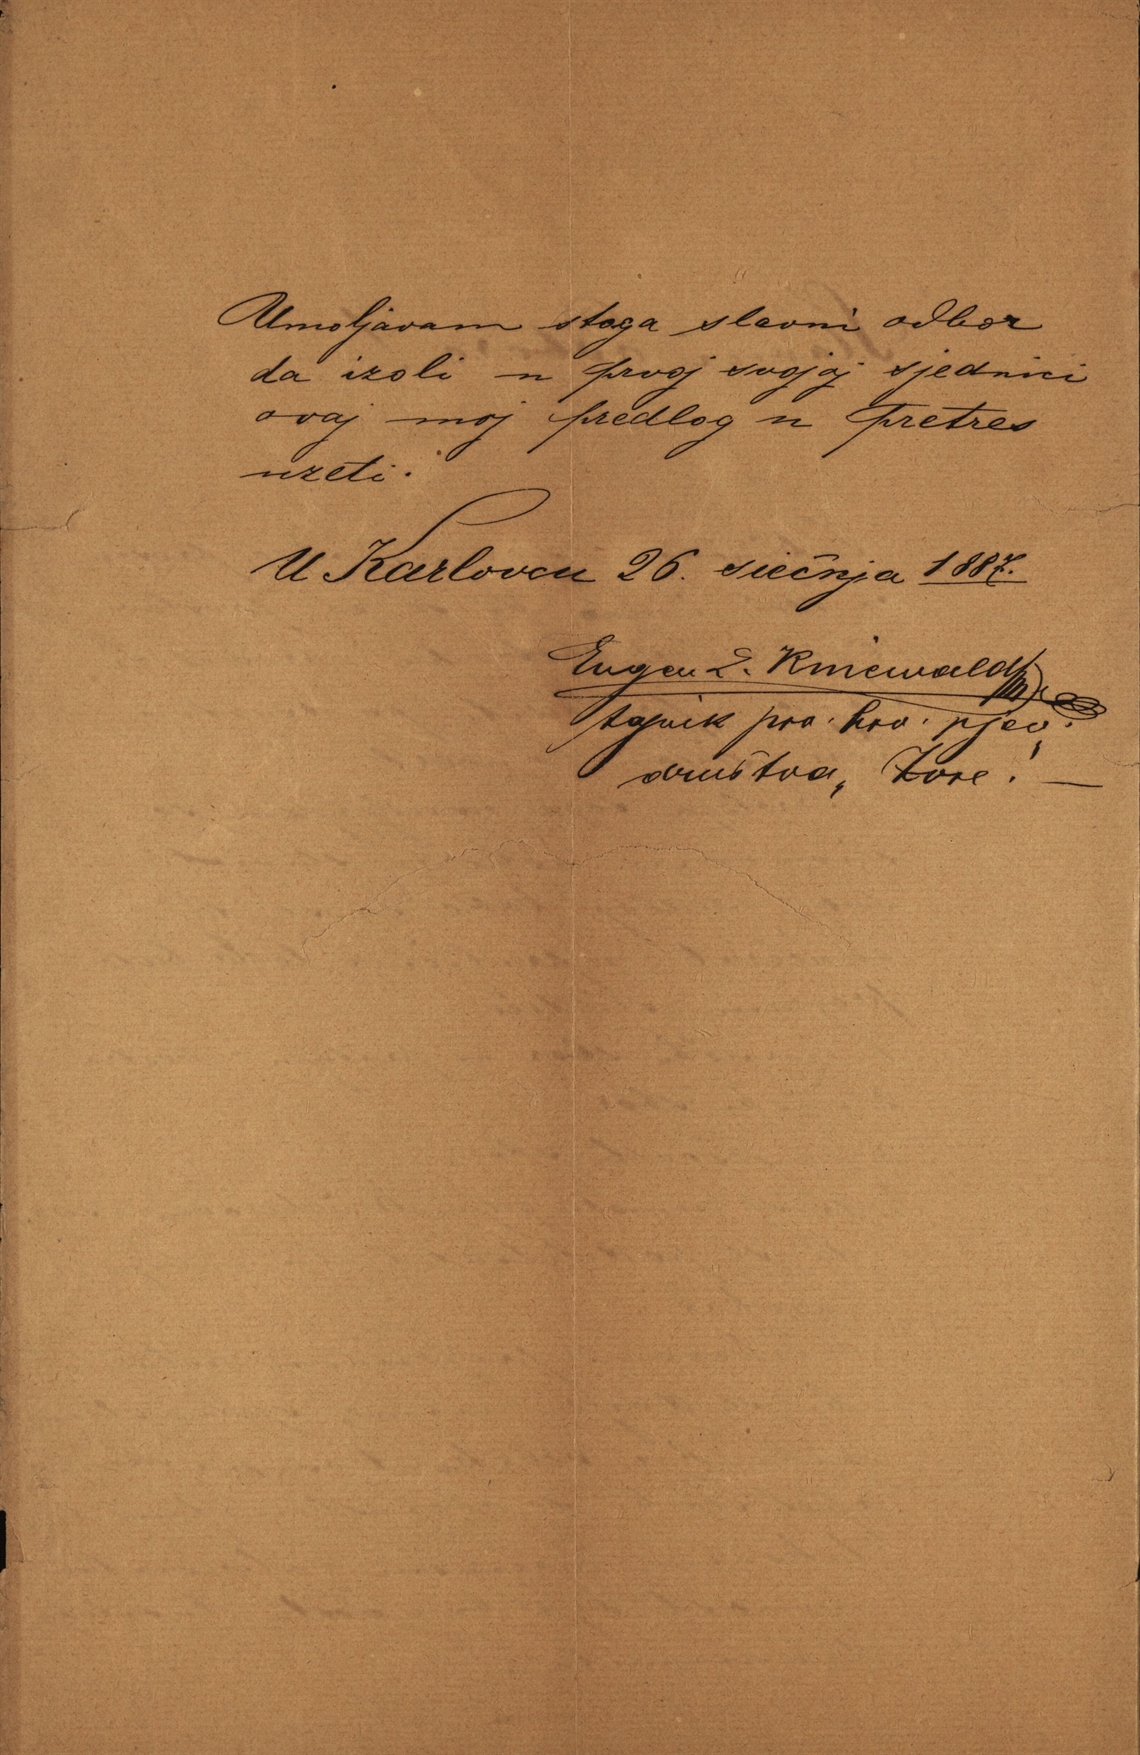 Umoljavam stoga slavni odbor
da izoli u prvoj svojoj sjednici
ovaj moj predlog u pretres
uzeti.
U Karlovcu 26. siečnja 1887.
Eugen L. Kniewald
tajnik prv. hrv. pjev.
društva „Zore!